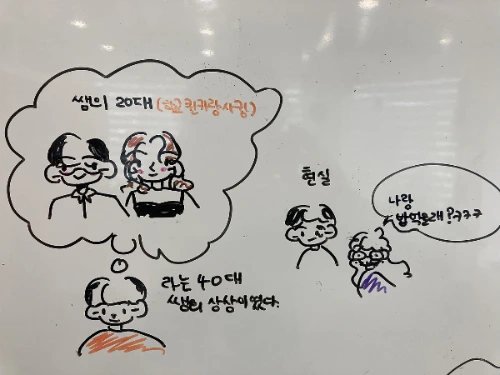 쌤의 20대 (학교 퀸카랑 사귐)
라는 40대
쌤의 상상이였다.
현실
나랑
밥먹을래?ㅋㅋㅋ